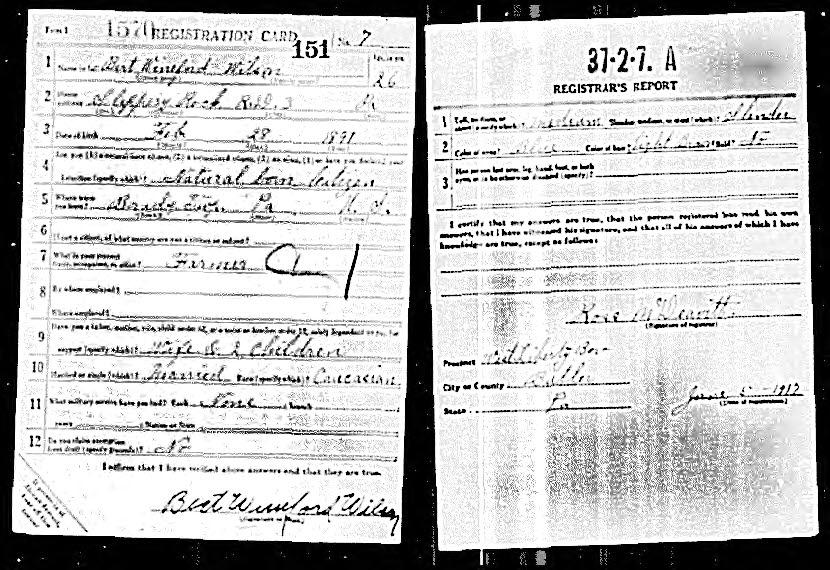 Form 1 1570 REGISTRATION CARD 151 No. 7
1 Bert Wineford Wilson 26
2 Slippery Rock R.D. 3 Pa
3 Date of birth Feb 28 1891
4 Are you (1) a natural-born citizen, (2) a naturalized citizen, (3) an alien, (4) or have you declared your
intention (specify which)? Natural born Citizen
5 Where were you born? Brady Twp Pa U. S.
6 If not a citizen, of what country are you a citizen or subject?
7 What is your present trade, occupation, or office? Farmer
8 By whom employed?
Where employed?
9 Have you a father, mother, wife, child under 12, or a sister or brother under 12, solely dependent on you for
support (specify which)? Wife & 2 Children
10 Married or single (which)? Married Race (specify which)? Caucasian
11 What military service have you had? Rank None branch
years Nation or State
12 Do you claim exemption from draft (specify grounds)? No
I affirm that I have verified above answers and that they are true.
Bert Wineford Wilson
(Signature or mark)
37-2-7. A
REGISTRAR'S REPORT
1 Tall, medium, or short (specify which)? Medium Slender, medium, or stout (which)? Slender
2 Color of eyes? Blue Color of hair? Light Bald? No
3 Has person lost arm, leg, hand, foot, or both eyes, or is he otherwise disabled (specify)?
I certify that my answers are true, that the person registered has read his own
answers, that I have witnessed his signature, and that all of his answers of which I have
knowledge are true, except as follows:
Ross McDevitt
(Signature of registrar)
Precinct West Liberty Boro
City or County Butler
State Pa
June 5 - 1917
(Date of registration)